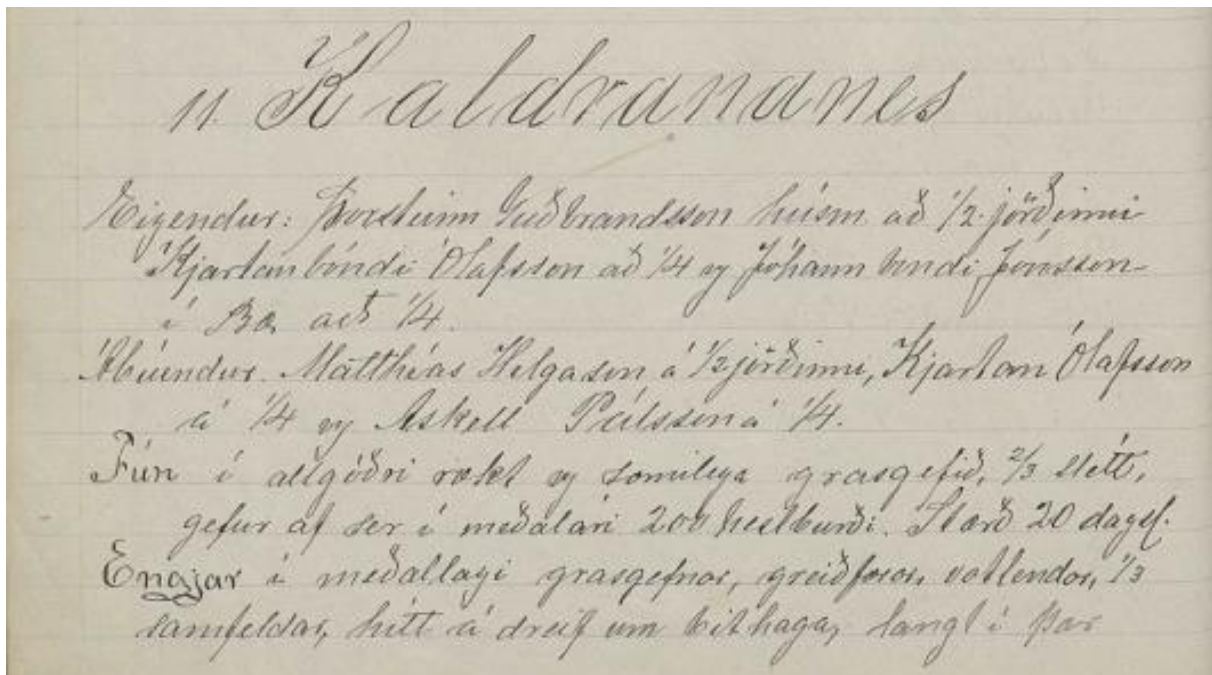 11. Kaldrananes
Eigendur: Þorsteinn Guðbrandsson húsm að 1/2 jörðinni
Kjartan bóndi Ólafsson að 1/4 og Jóhann bóndi Jónsson
í Bæ að 1/4.
Ábúendur. Matthías Helgason á 1/2 jörðinni, Kjartan Ólafsson
á 1/4 og Áskell Pálsson á 1/4.
Tún í allgóðri rækt og sæmilega grasgefið, 2/3 slétt,
gefur af sér í meðalári 200 hestburði. Stærð 20 dagsl.
Engjar í meðallagi grasgefnar, greiðfærar, votlendar, 1/3
samfeldar, hitt á dreif um bithaga, langt í þær